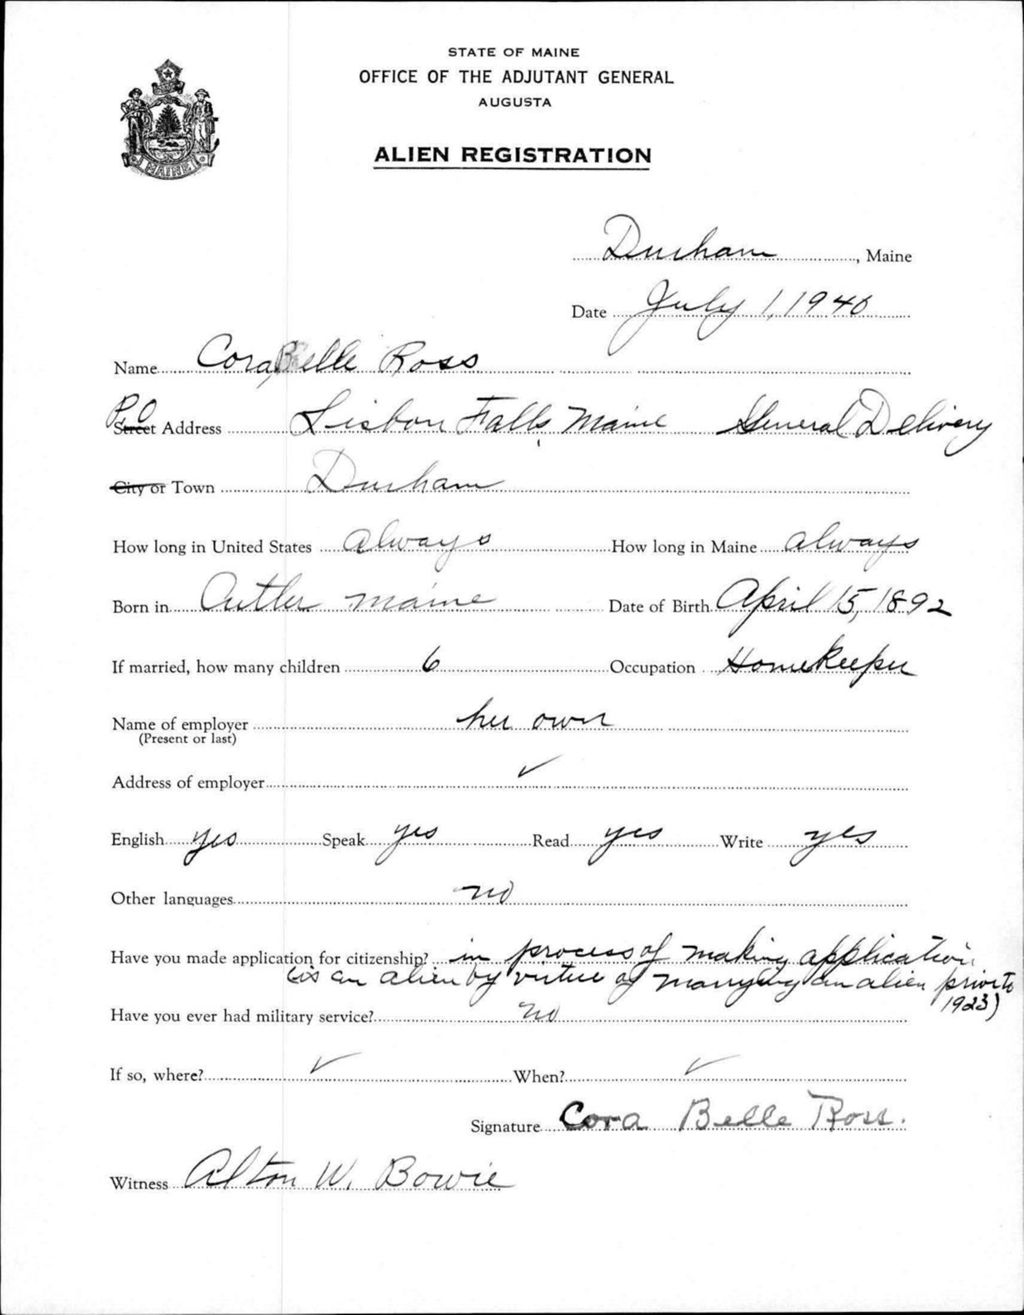 STATE OF MAINE
OFFICE OF THE ADJUTANT GENERAL
AUGUSTA
MAINE
ALIEN REGISTRATION
Durham, Maine
Date July 1, 1940
Name Cora Belle Ross
P.O. Street Address Lisbon Falls, Maine General Delivery
City or Town Durham
How long in United States always How long in Maine always
Born in Cutler Maine Date of Birth April 15, 1892
If married, how many children 6 Occupation Homekeeper
Name of employer her own
(Present or last)
Address of employer ✓
English yes Speak yes Read yes Write yes
Other languages no
Have you made application for citizenship? in process of making application
(is an alien by virtue of marrying an alien prior to
1923)
Have you ever had military service? no
If so, where? ✓ When? ✓
Signature Cora Belle Ross.
Witness Alton W. Bowie